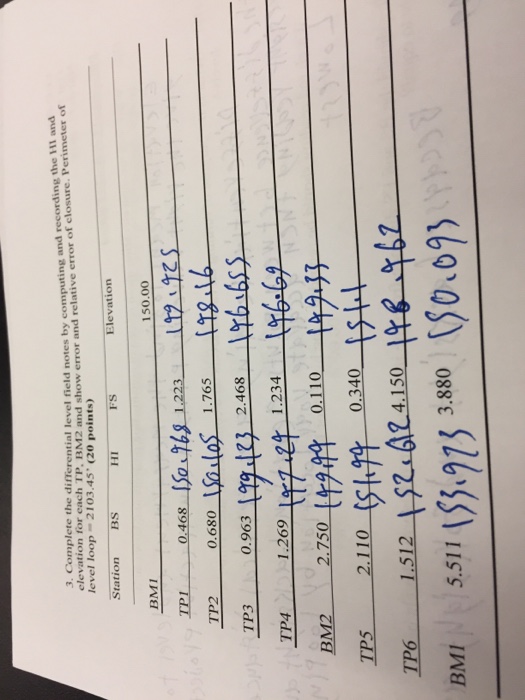 3. Complete the differential level field notes by computing and recording the HI and
elevation for each TP, BM2 and show error and relative error of closure. Perimeter of
level loop = 2103.45' (20 points)
Station BS HI FS Elevation
BM1 150.00
0.468 150.468 1.223
TP1 149.425
0.680 150.105 1.765
TP2 148.16
0.963 149.123 2.468
TP3 146.655
1.269 147.29 1.234
TP4 146.69
2.750 149.44 0.110
BM2 149.33
2.110 151.44 0.340
TP5 151.1
1.512 152.612 4.150
TP6 148.462
5.511 153.973 3.880
BM1 150.093